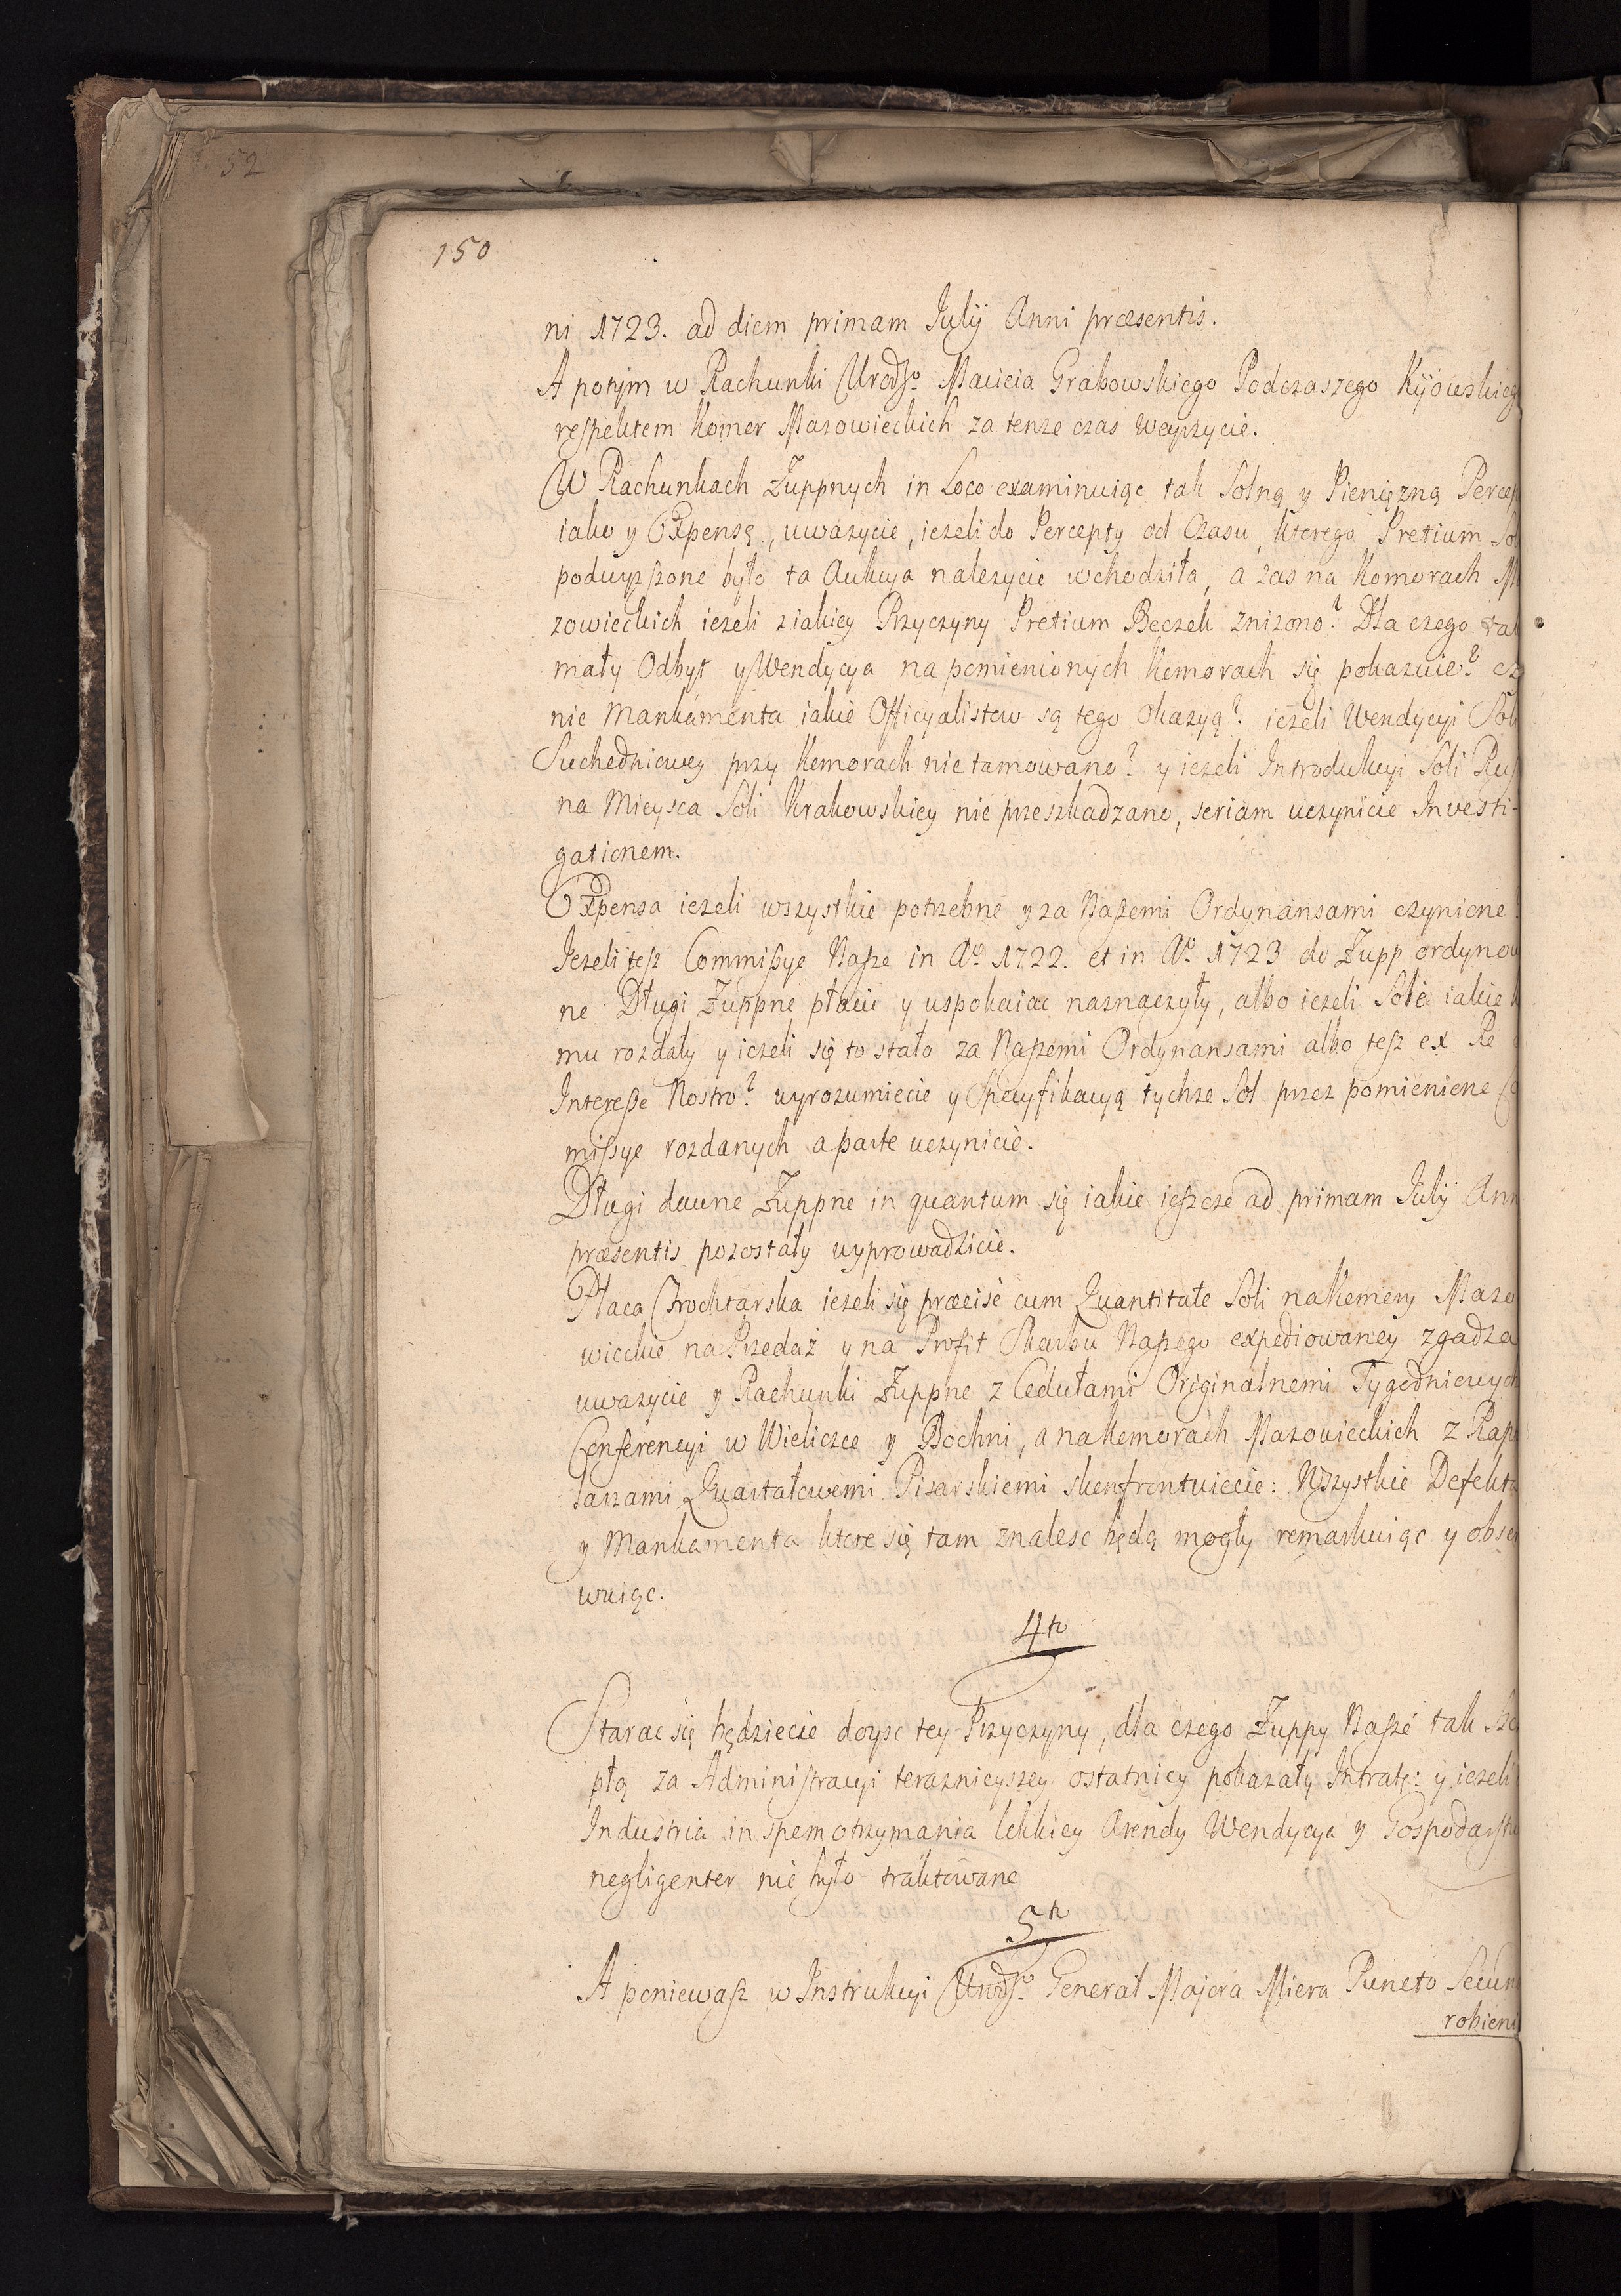 52
150
ni 1723. ad diem primam Julÿ Anni præsentis.
A potym w Rachunki Urodz° Macieia Grabowskiego Podczaszego Kÿowskieg
respektem Komor Mazowieckich za tenze czas weyrzycie.
W Rachunkach Żuppnych in Loco examinuiąc tak Solną y Pieniężną Percep
iako y Expensę, uwazycie, iezeli do Percepty od Czasu, ktorego Pretium Sol
podwyzszone było ta Aukcya nalezycie wchodziła, a zas na Komorach Ma
zowieckich iezeli z iakiey Przyczyny Pretium Beczek znizono? Dla czego tak
mały Odbyt y Wendycya na pomienionych Komorach się pokazuie? cz
nie Mankamenta iakie Officyalistow są tego Okazyą? iezeli Wendycyi Soli
Suchedniowey przy Komorach nie tamowano? y iezeli Introdukcyi Soli Rus
na Mieysca Soli Krakowskiey nie przeszkadzano, seriam uczynicie Investi-
gationem.
Expensa iezeli wszystkie potrzebne y za Naszemi Ordynansami czynione
Jezeli tesz Commissye Nasze in A° 1722. et in A° 1723 do Żupp ordynow
ne Długi Żuppne płacic y uspokaiac naznaczyły, albo iezeli Sole iakie k
mu rozdały y iezeli się to stało za Naszemi Ordynansami albo tesz ex Re
Interesse Nostro? wyrozumiecie y Specyfikacyą tychze Sol przez pomienione Co
missye rozdanych aparte uczynicie.
Długi dawne Żuppne in quantum się iakie ieszcze ad primam Julÿ Ann
præsentis pozostały wyprowadzicie.
Płaca Trochtarska iezeli się præcise cum Quantitate Soli na Komory Mazo
wieckie na Przedaż y na Profit Skarbu Naszego expediowaney zgadza
uwazycie y Rachunki Żuppne z Cedułami Originalnemi Tygodniowych
Conferencyi w Wieliczce y Bochni, a na Komorach Mazowieckich z Rap
larzami Quartałowemi Pisarskiemi skonfrontuiecie: Wszystkie Defekta
y Mankamenta ktore się tam znalesc będą mogły remarkuiąc y obser
wuiąc.
4to
Starac się będziecie doysc tey Przyczyny, dla czego Żuppy Nasze tak Szc
płą za Administracyi teraznieyszey ostatniey pokazały Intratę: y iezeli
Industria in spem otrzymania lekkiey Arendy Wendycya y Gospodarstw
negligenter nie było traktowane
5to
A poniewasz w Instrukcyi Urodz° General Majora Miera Puncto Secun
robieni